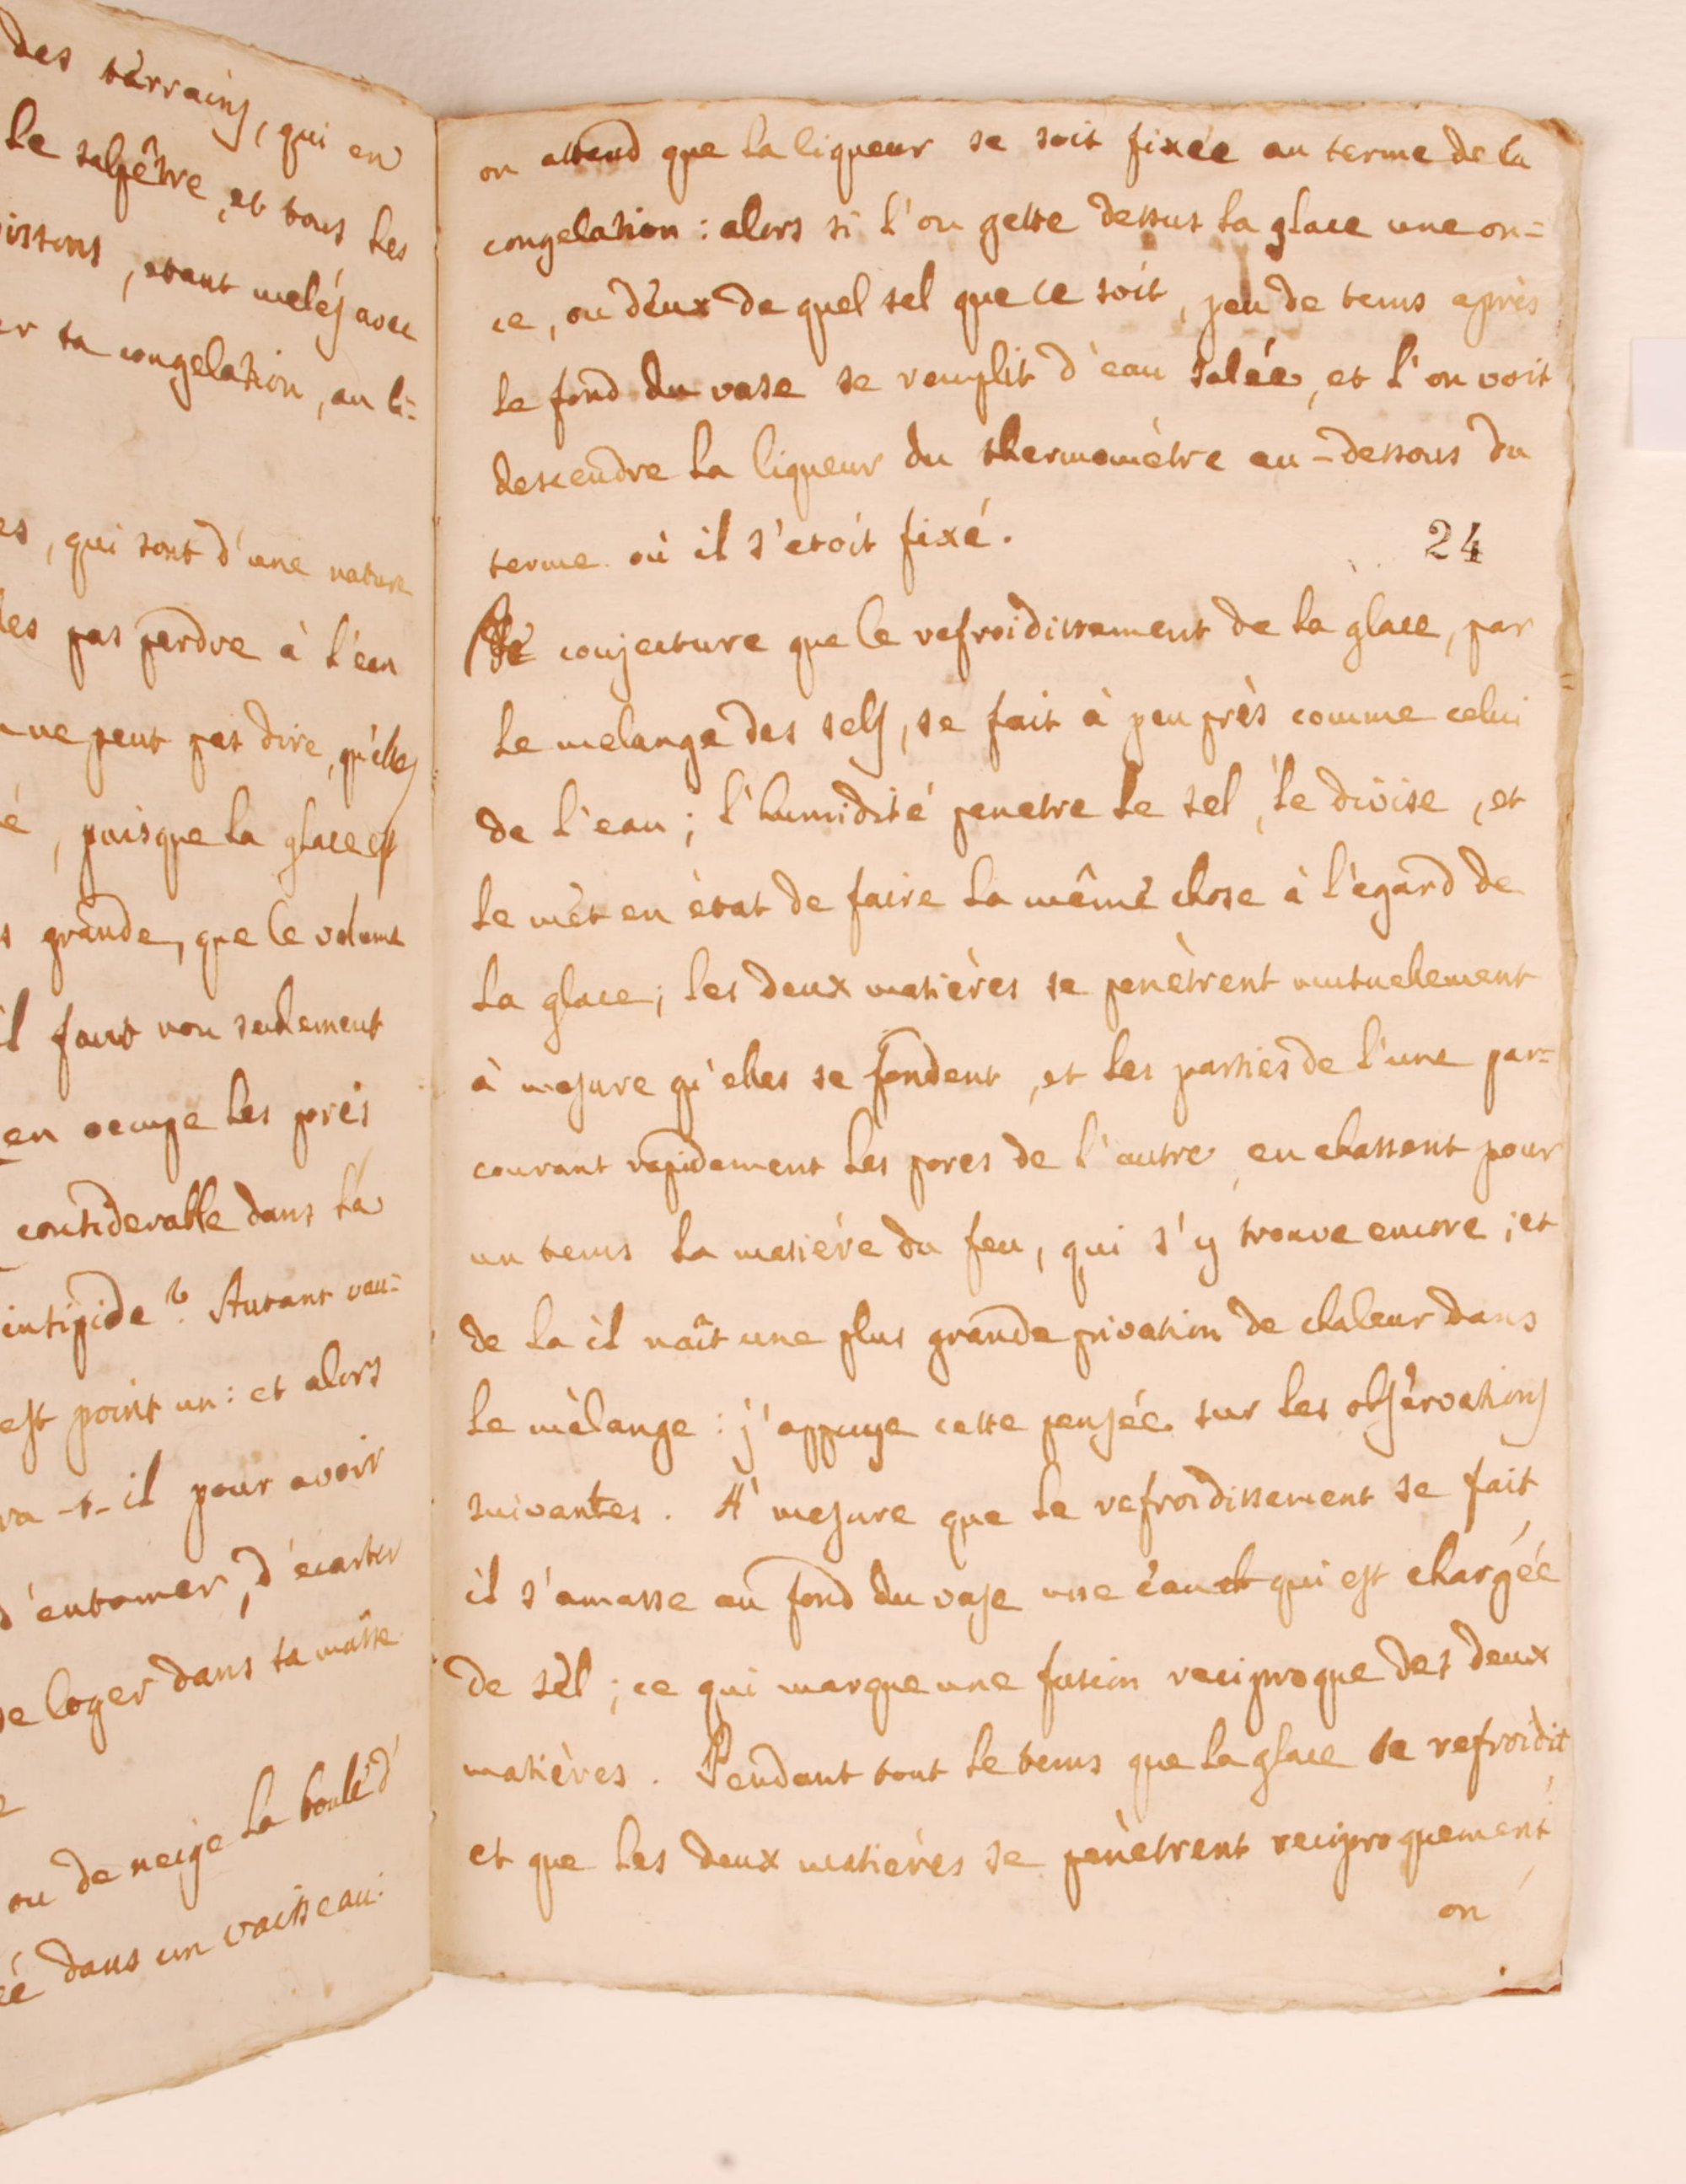 des tèrrains, qui en
le salpêtre, et tous les
issons, etant meléz avec
er sa congelation, au li=
es, qui sont d'une nature
les pas perdre à l'eau
ne peut pas dire, qu'elles
é, puisque la glace est
s grande, que le volume
il faut non seulement
en occupe les près
considerable dans la
insipide? Autant vau=
est point un: et alors
va-t-il pour avoir
d'entamer, d'ecarter
se loger dans sa masse
ou de neige la boule d'
éé dans un vaisseau.
on attend que la liqueur se soit fixée au terme de la
congelation: alors si l'on gette dessus la glace une on=
ce, ou deux de quel sel que ce soit, peu de tems après
le fond du vase se remplit d'eau salée, et l'on voit
descendre la liqueur du thermomètre au-dessous du
terme où il s'etoit fixé.
24
Je conjecture que le refroidissement de la glace, par
le melange des sels, se fait à peu près comme celui
de l'eau; l'humidité penetre le sel, le divise, et
le mèt en ètat de faire la même chose à l'ègard de
la glace; les deux matières se penètrent mutuellement
à mesure qu'elles se fondent, et les parties de l'une par=
courant rapidement les pores de l'autre, en chassent pour
un tems la matière du feu, qui s'y trouve encore; et
de la il naît une plus grande privation de chaleur dans
le mèlange: j'appuye cette pensée sur les obsèrvations
suivantes. A' mesure que le refroidissement se fait,
il s'amasse au fond du vase une eau et qui est chargée
de sèl; ce qui marque une fusion reciproque des deux
matières. Pendant tout le tems que la glace se refroidit,
et que les deux matières se penètrent reciproquement,
on